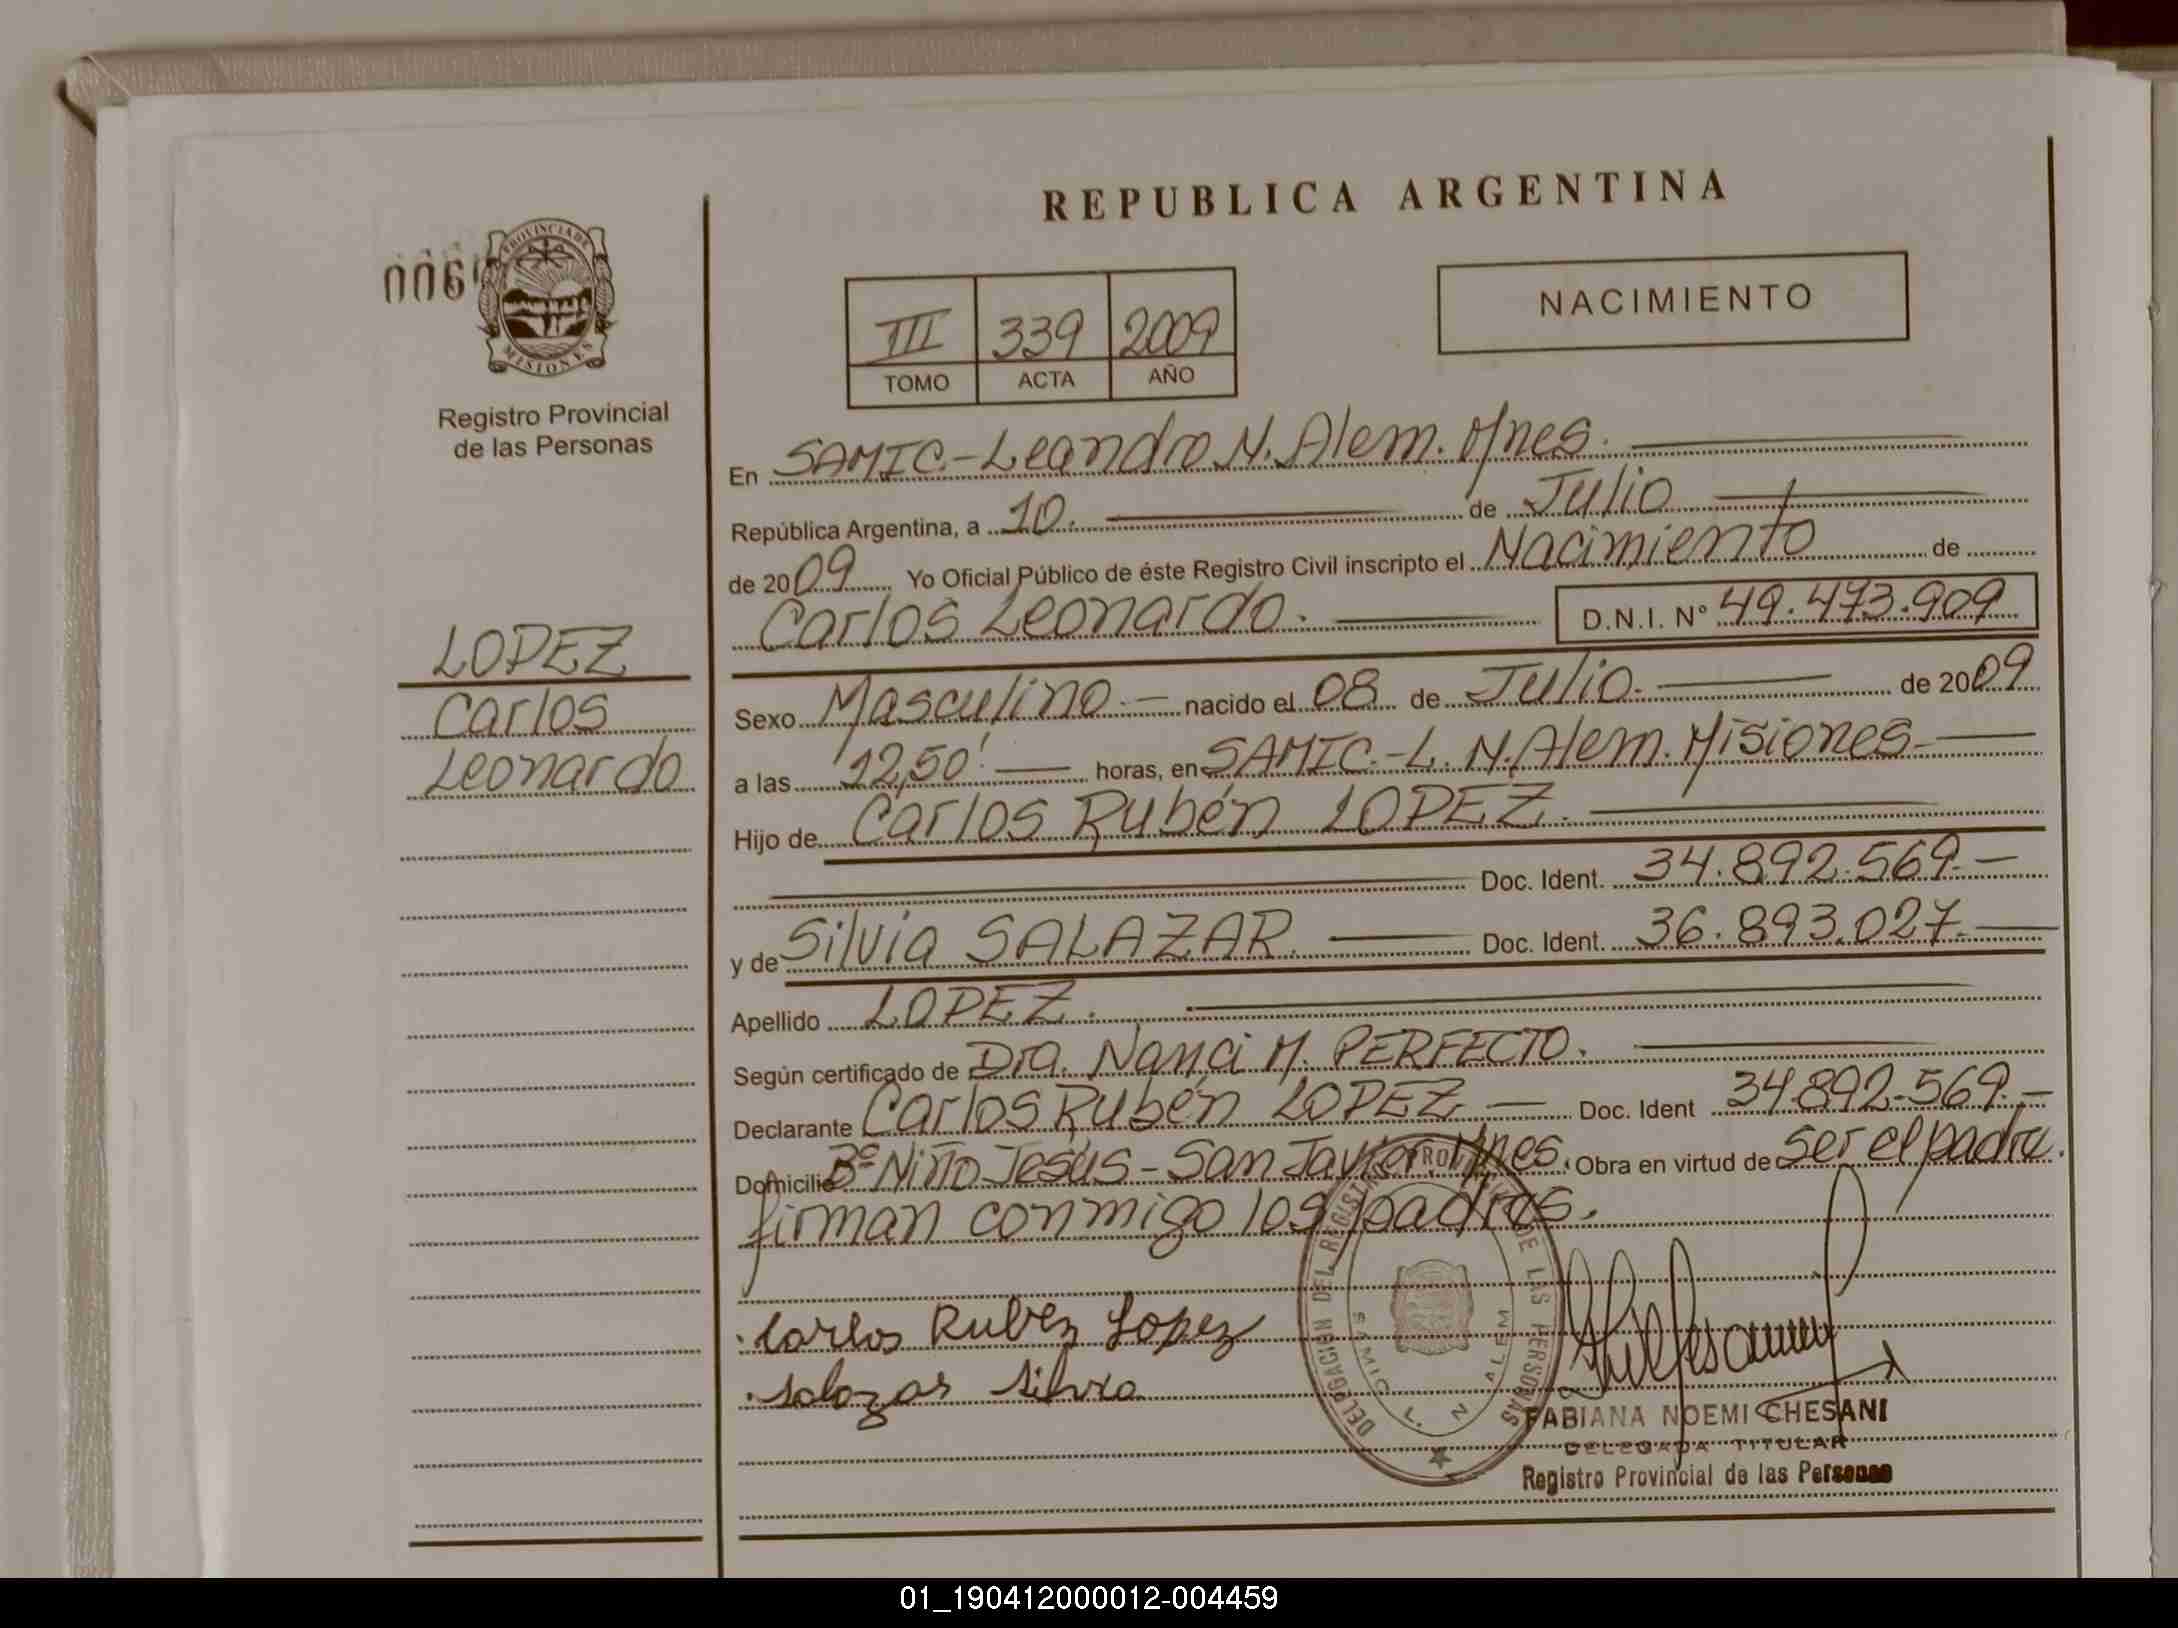 REPUBLICA ARGENTINA
NACIMIENTO
006
PROVINCIA DE
MISIONES
Registro Provincial
de las Personas
III 339 2009
TOMO ACTA AÑO
En SAMIC.-Leandro N. Alem. Mnes.
República Argentina, a 10. de Julio
de 2009 Yo Oficial Público de éste Registro Civil inscripto el Nacimiento de
Carlos Leonardo. D.N.I. Nº 49.473.909
LOPEZ
Carlos
Leonardo
Sexo Masculino.- nacido el 08 de Julio. de 2009
a las 12,50' horas, en SAMIC.-L. N. Alem. Misiones.
Hijo de Carlos Rubén LOPEZ.
Doc. Ident. 34.892.569.-
y de Silvia SALAZAR. Doc. Ident. 36.893.027.-
Apellido LOPEZ.
Según certificado de Dra. Nanci M. PERFECTO.
Declarante Carlos Rubén LOPEZ.- Doc. Ident 34.892.569.-
Domicilio Bº Niño Jesús - San Javier. Mnes. Obra en virtud de ser el padre.
firman conmigo los padres.
Carlos Ruben Lopez
Salazar Silvia
DELEGACION DEL REGISTRO DE LAS PERSONAS
SAMIC L. N ALEM
FABIANA NOEMI CHESANI
DELEGADA TITULAR
Registro Provincial de las Personas
01_190412000012-004459